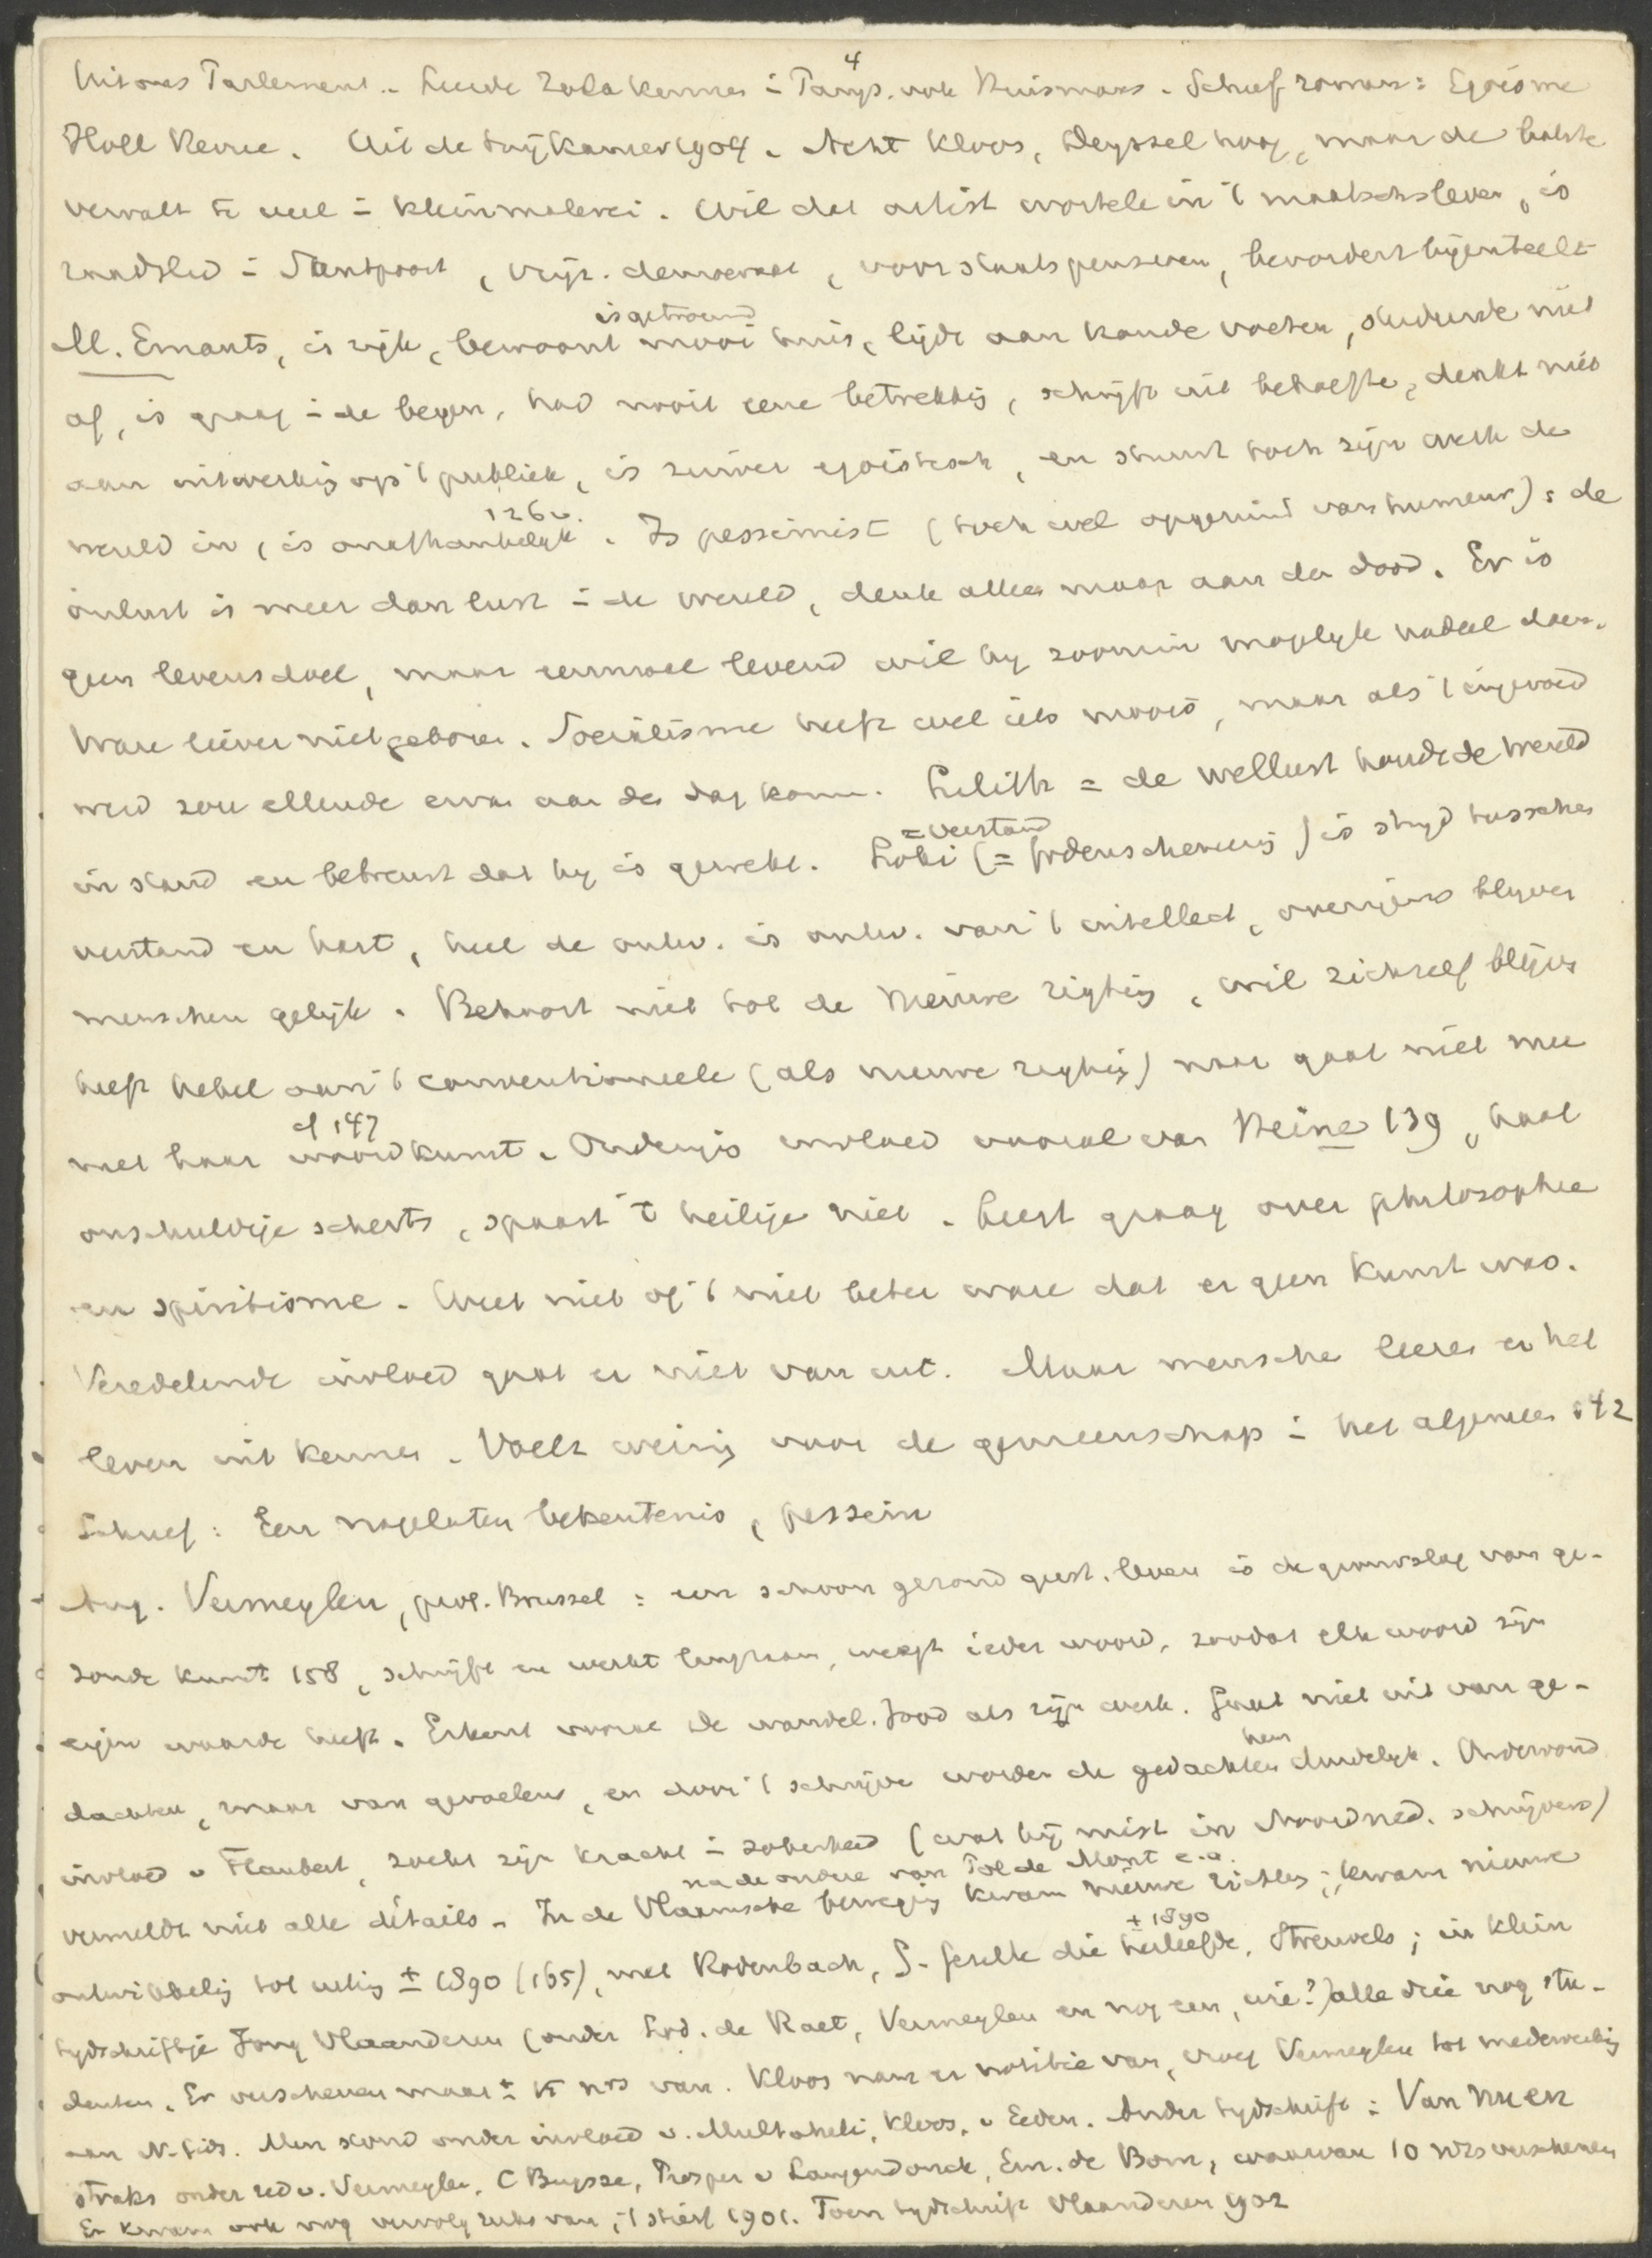 4
Uit ons Parlement. - Leerde Zola kennen i Parijs. ook Huismans. Schreef roman: Egoisme
Holl Revue. Uit de suikamer 1904. Acht Kloos, Deyssel hoog, maar de laatste
vervalt te veel i kleinmalerei. Wil dat artist wortele in 't maatschsleven, is
raadslid i Santpoort, vrijz. democraat, voor staatspensioen, bevordert bijenteelt
is getrouwd
M. Emants, is rijk, bewoont mooi huis, lijdt aan koude voeten, studeerde niet
af, is graag i de bergen, had nooit eene betrekking, schrijft uit behoefte, denkt niet
aan uitwerking op 't publiek, is zuiver egoistisch, en stuurt toch zijn werk de
126 v.
wereld in, is onafhankelijk. Is pessimist (toch wel opgeruimd van humeur): de
onlust is meer dan lust i de wereld, denk alleen maar aan den dood. Er is
geen levensdoel, maar eenmaal levend wil hy zoomin mogelyk nadeel doen.
Ware liever niet geboren. Socialisme heeft wel iets moois, maar als 't ingevoerd
werd zou ellende ervan aan den dag komen. Lilith = de wellust houdt de wereld
= verstand
in stand en betreurt dat hy is gewekt. Loki (= Godenschemering) is stryd tusschen
verstand en hart, heel de ontw. is ontw. van 't intellect, overigens blyven
menschen gelijk. Behoort niet tot de nieuwe rigting, wil zichzelf blijven
heeft hekel aan 't conventioneele (als nieuwe rigting) maar gaat niet mee
cf 147
met haar woordkunst. Ondergis invloed vooral van Heine 139, haat
onschuldige scherts, spaart 't heilige niet. Leest graag over philosophie
en spiritisme. Weet niet of 't niet beter ware dat er geen kunst was.
Veredelende invloed gaat er niet van uit. Maar mensche leeren er het
leven uit kennen. Voelt weinig voor de gemeenschap i het algemeen 142
Schreef: Een nagelaten bekentenis, pessim
Aug. Vermeylen, prof. Brussel: een schoon gezond geest. leven is de grondslag van ge-
zonde kunst 158, schrijft en werkt langzaam, weegt ieder woord, zoodat elk woord zijn
eigen waarde heeft. Erkent vooral de wandel. Jood als zijn werk. Gaat niet uit van ge-
hem
dachten, maar van gevoelens, en door 't schrijve worden de gedachten duidelyk. Ondervond
invloed v Flaubert, zoekt zijn kracht i soberheid (wat hij mist in Noordned. schrijvers)
na de oudere van Pol de Mont e.a.
vermeldt niet alle détails. In de Vlaamsche beweging kwam nieuwe richting; kwam nieuwe
± 1890
ontwikkeling tot uiting ± 1890 (165), met Rodenbach, G. Gezelle die herleefde, Streuvels; in klein
tydschriftje Jong Vlaanderen (onder Lod. de Raet, Vermeylen en nog een, wie?) alle drie nog stu-
denten. Er verschenen maar ± 15 nrs van. Kloos nam er notitie van, vroeg Vermeylen tot medewerking
aan N. Gids. Men stond onder invloed v. Multatuli, Kloos, v Eeden. Ander tydschrift: Van Nu en
Straks onder red v. Vermeylen, C Buysse, Prosper v Langendonck, Em. de Bom, waarvan 10 nrs verschenen
Er kwam ook nog vervolg reeks van, 't stierf 1901. Toen tydschrift Vlaanderen 1902